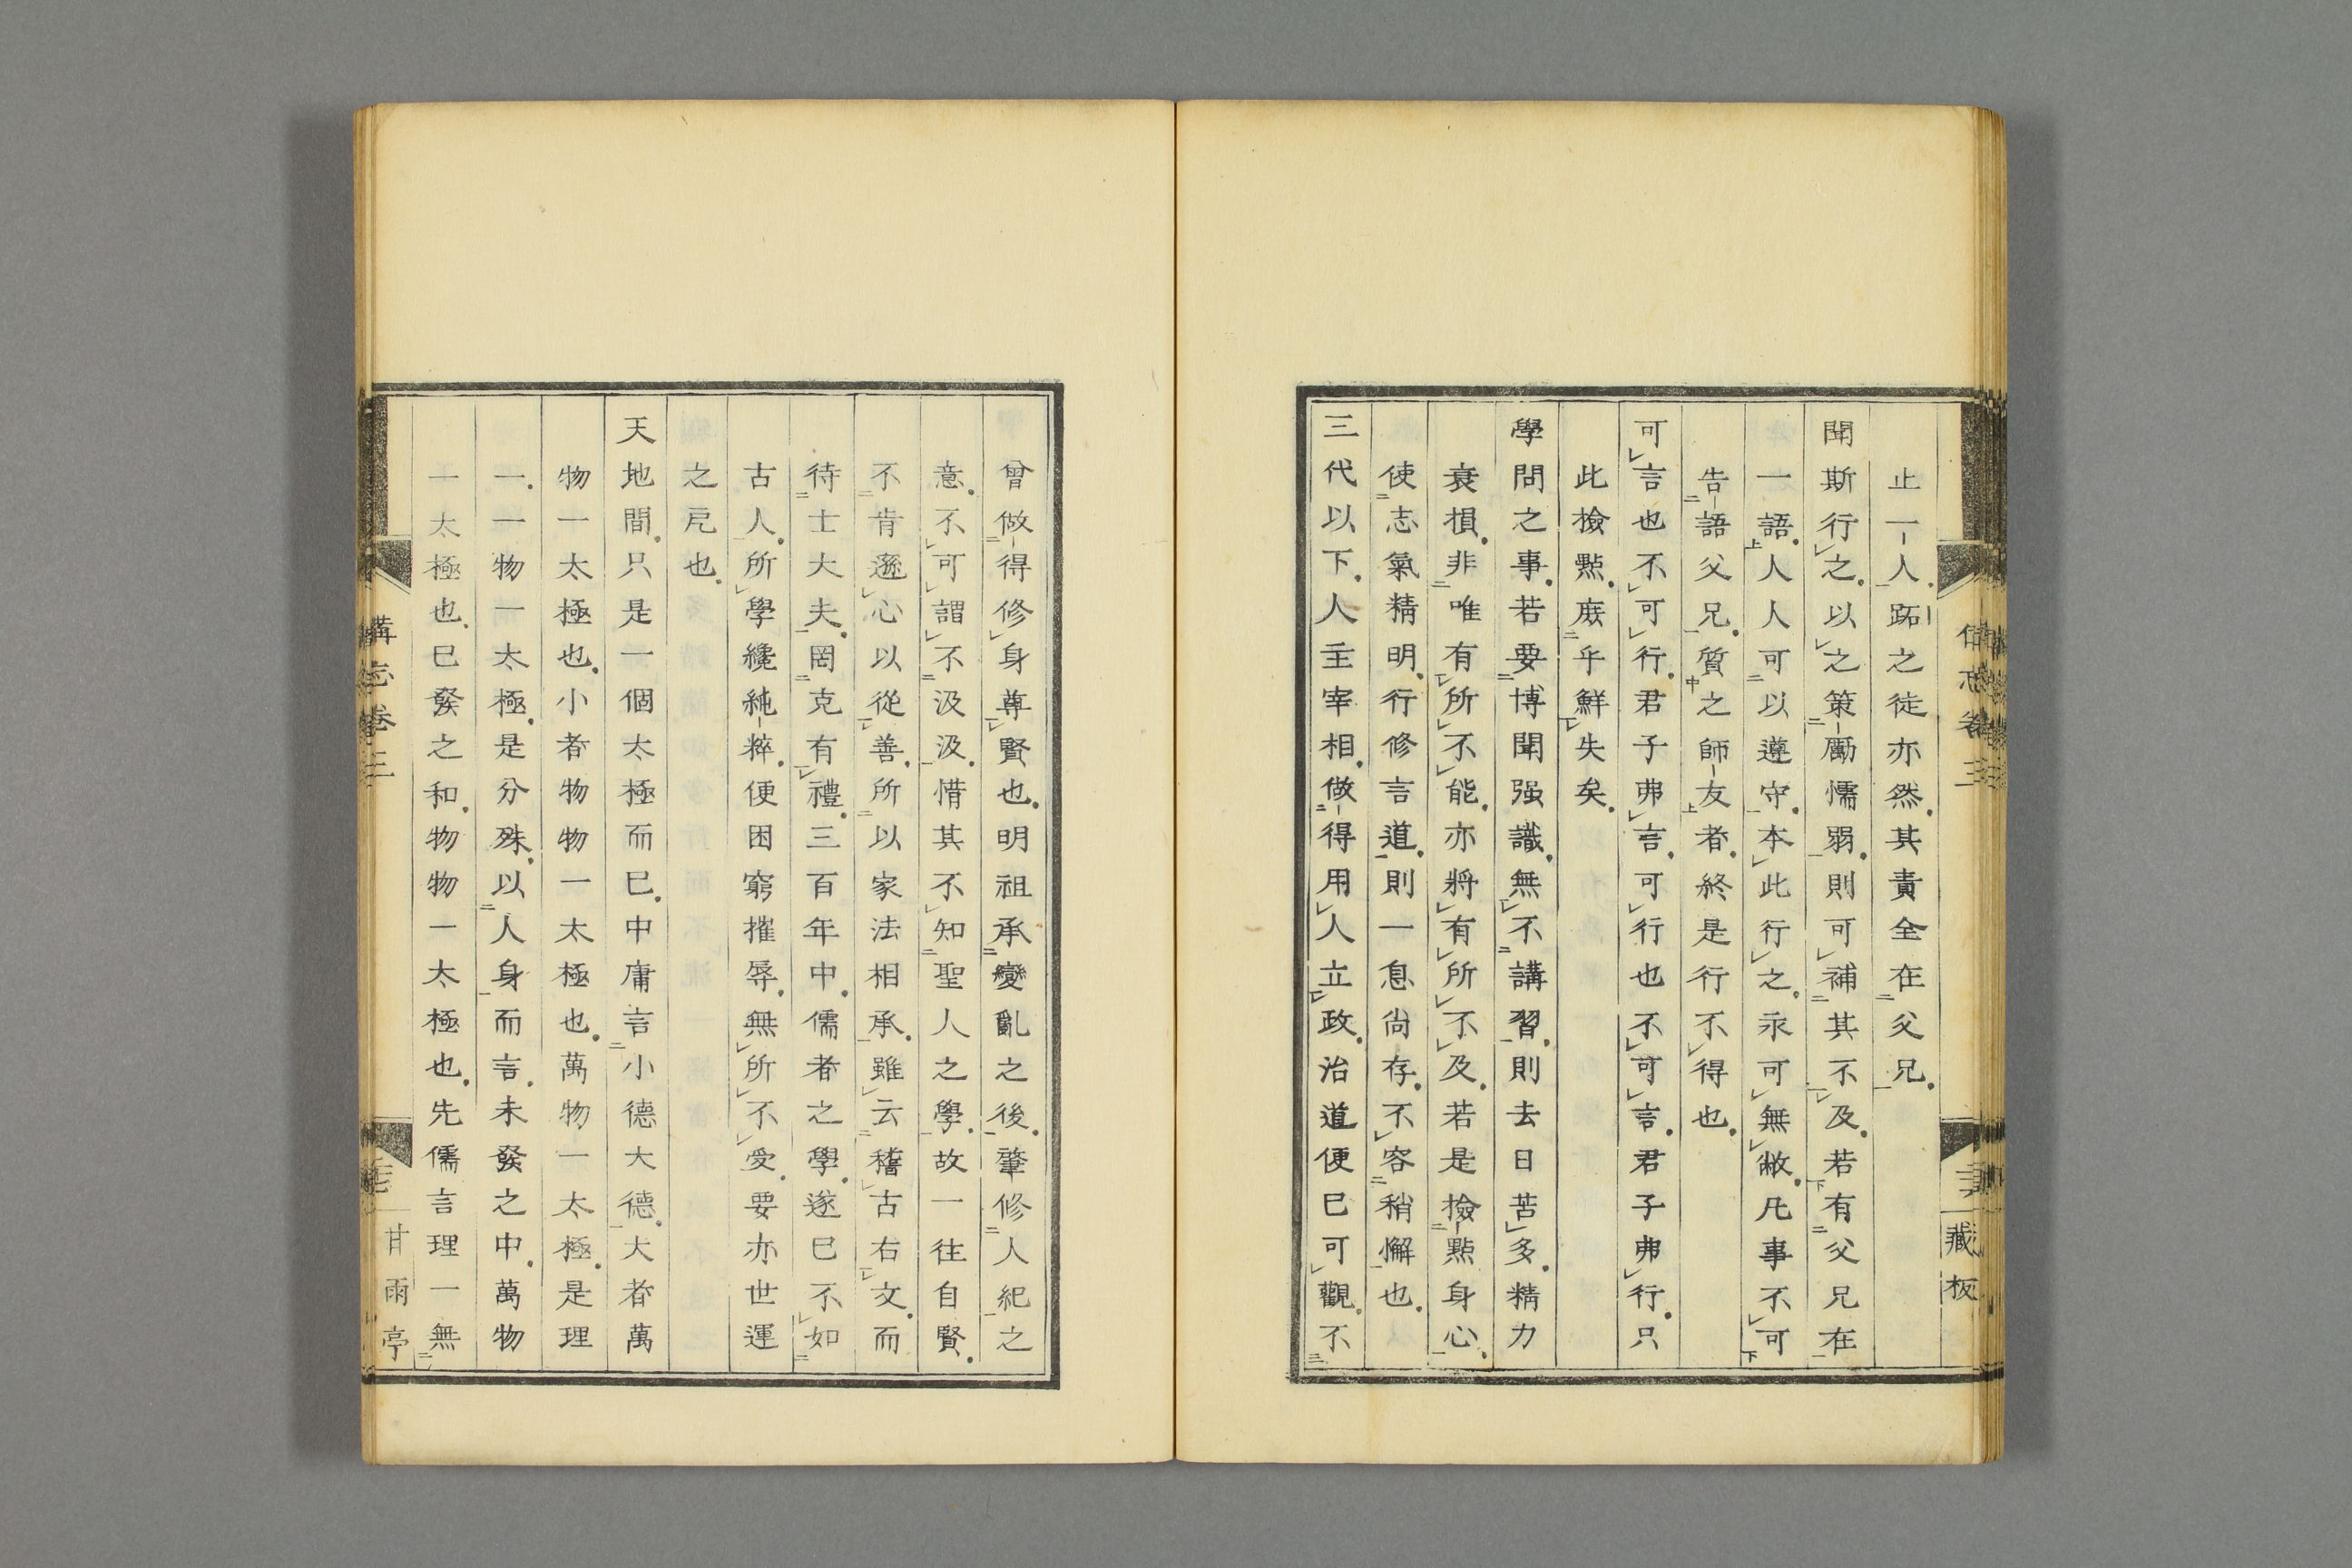 止一人跖之徒亦然其責全在父兄
聞斯行之以之策勵懦弱則可補其不及若有父兄在
一語人人可以遵守本此行之永可無敝凡事不可
告語父兄質之師友者終是行不得也
可言也不可行君子弗言可行也不可言君子弗行只
此檢點庶乎鮮失矣
學問之事若要博聞强識無不講習則去日苦多精力
衰損非唯有所不能亦將有所不及若是檢點身心
使志氣精明行修言道則一息尙存不容稍懈也
三代以下人主宰相做得用人立政治道便已可觀不
曾做得修身尊賢也明祖承變亂之後肇修人紀之
意不可謂不汲汲惜其不知聖人之學故一往自賢
不肯遜心以從善所以家法相承雖云稽古右文而
待士大夫罔克有禮三百年中儒者之學遂已不如
古人所學纔純粹便困窮摧辱無所不受要亦世運
之戹也
天地間只是一個太極而已中庸言小德大德大者萬
物一太極也小者物物一太極也萬物一太極是理
一一物一太極是分殊以人身而言未發之中萬物
一太極也已發之和物物一太極也先儒言理一無
備忘卷三
藏板
備忘卷三
甘雨亭